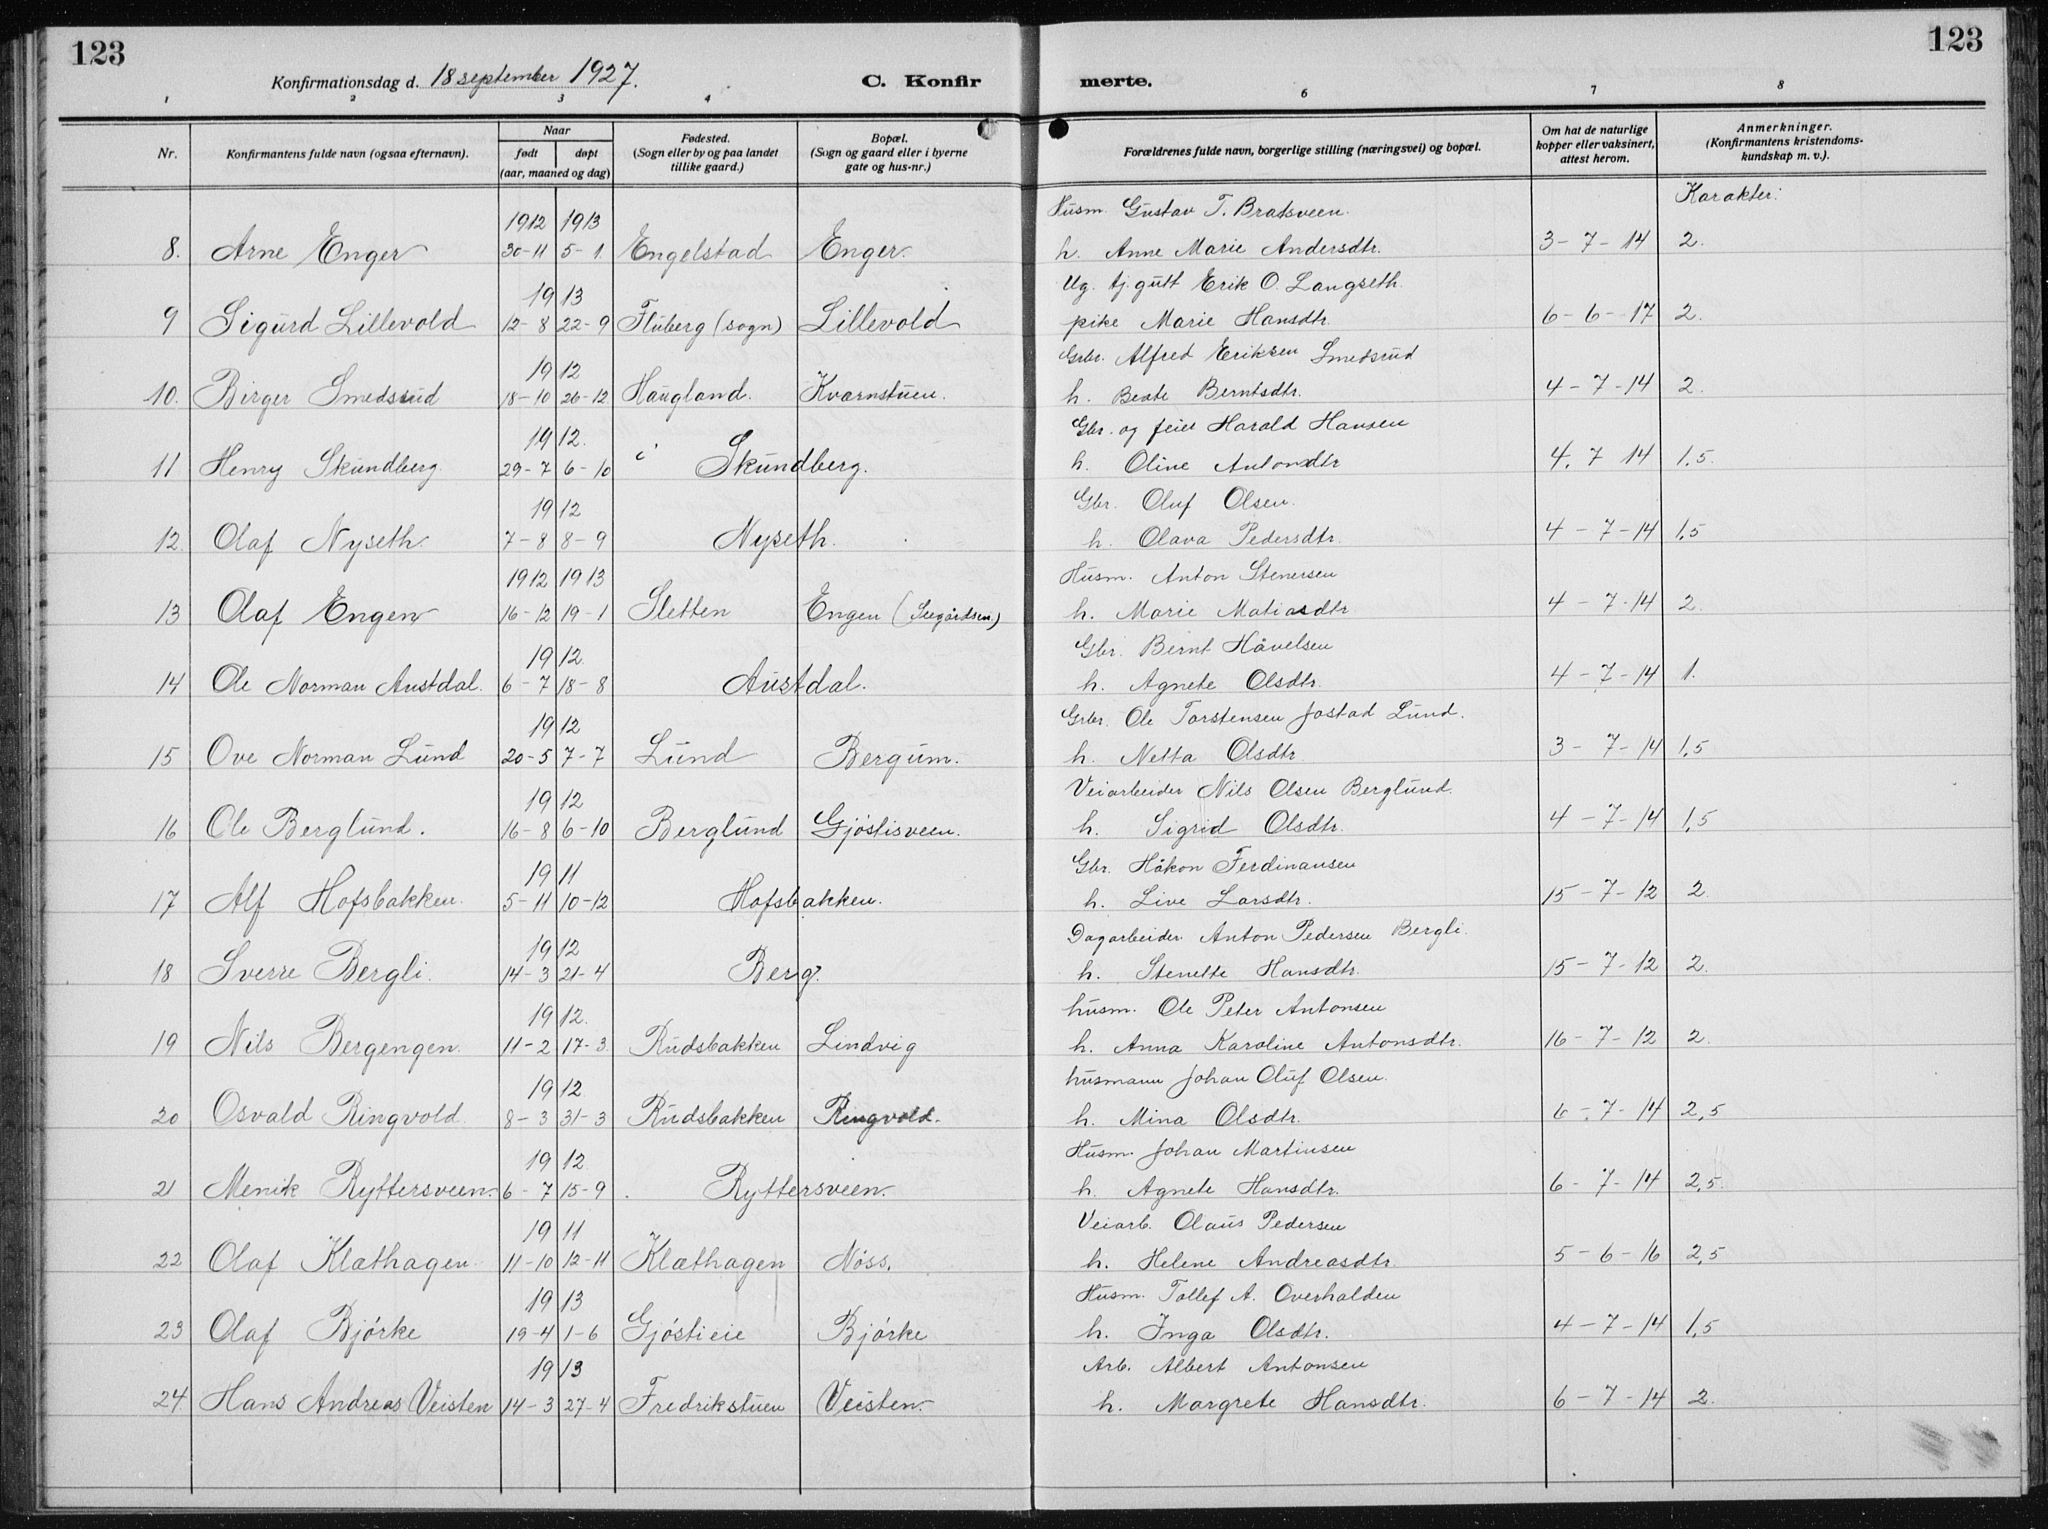 123
123
Konfirmationsdag d. 18 september 1927.
C. Konfirmerte.
1 2 3 4 6 7 8
Nr. | Konfirmantens fulde navn (ogsaa efternavn). | Naar født døpt (aar, maaned og dag) | Fødested. (Sogn eller by og paa landet tillike gaard.) | Bopæl. (Sogn og gaard eller i byerne gate og hus-nr.) | Forældrenes fulde navn, borgerlige stilling (næringsvei) og bopæl. | Om hat de naturlige kopper eller vaksinert, attest herom. | Anmerkninger. (Konfirmantens kristendomskundskap m. v.).
Karakter:
1912 1913 Husm. Gustav T. Bratsveen.
8. Arne Enger 30-11 5-1. Engelstad Enger. h. Anne Marie Andersdtr. 3-7-14 2.
1913 Ug. tj. gutt Erik O. Langseth.
9 Sigurd Lillevold 12-8 22-9 Fluberg (sogn) Lillevold pike Marie Hansdtr. 6-6-17 2.
1912 Grbr. Alfred Eriksen Smedsrud
10. Birger Smedsrud 18-10 26-12 Haugland. Kvarnstuen. h. Beate Berntsdtr. 4-7-14 2.
1912. Gbr. og feier Harald Hansen
11 Henry Skundberg. 29-7 6-10 i Skundberg. h. Oline Antonsdtr 4.7 14 1,5.
1912 Gbr. Oluf Olsen.
12. Olaf Nyseth. 7-8 8-9 Nyseth. h. Olava Pedersdtr. 4-7-14 1,5
1912 1913 Husm. Anton Stenersen
13 Olaf Engen 16-12 19-1 Sletten Engen h. Marie Matiasdtr 4-7-14 2.
1912. Gbr. Bernt Håvelsen
14 Ole Norman Austdal. 6-7 18-8 Austdal. h. Agnete Olsdtr. 4-7-14 1.
1912 Grbr. Ole Torstensen Jøstad Lund.
15 Ove Norman Lund 20-5 7-7 Lund Bergum. h. Netta Olsdtr. 3-7-14 1,5
1912 Veiarbeider Nils Olsen Berglund.
16 Ole Berglund. 16-8 6-10 Berglund Gjöstisveen. h. Sigrid Olsdtr. 4-7-14 1,5
1911 Gbr. Håkon Ferdinansen
17 Alf Hofsbakken. 5-11 10-12 Hofsbakken. h. Live Larsdtr. 15-7-12 2
1912 Dagarbeider Anton Pedersen Bergli.
18 Sverre Bergli. 14-3 21-4 Berg. h. Stenette Hansdtr. 15-7-12 2.
1912. husm. Ole Peter Antonsen
19 Nils Bergengen. 11-2 17-3. Rudsbakken Lindvig h. Anna Karoline Antonsdtr. 16-7-12 2.
1912 husmann Johan Oluf Olsen.
20 Osvald Ringvold. 8-3 31-3 Rudsbakken Ringvold. h. Mina Olsdtr. 6-7-14 2,5
1912 Husm. Johan Martinsen
21 Menik Ryttersveen. 6-7 15-9 Ryttersveen. h. Agnete Hansdtr. 6-7-14 2,5.
1911 Veiarb. Olaus Pedersen
22 Olaf Klæthagen. 11-10 12-11 Klæthagen Nöss. h. Helene Andreasdtr. 5-6-16 2,5
1913 Husm. Tollef A. Overhalden
23 Olaf Björke 19-4 1-6 Gjöstieie Björke h. Inga Olsdtr. 4-7-14 1,5
1913 Arb. Albert Antonsen
24 Hans Andreas Veisten 14-3 27-4 Fredrikstuen Veisten. h. Margrete Hansdtr. 6-7-14 2.